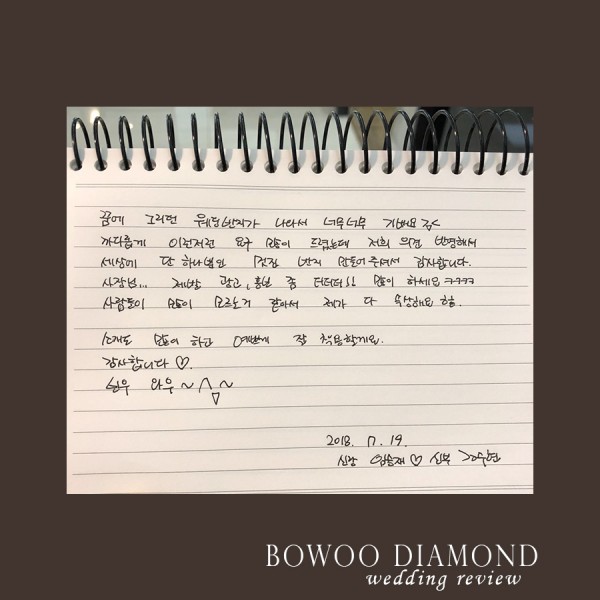 꿈에 그리던 웨딩반지가 나와서 너무너무 기뻐요
까다롭게 이런저런 요구 많이 드렸는데 저희 의견 반영해서
세상에 단 하나뿐인 멋진 반지 만들어주셔서 감사합니다.
사장님... 제발 광고, 홍보 좀 더더더!! 많이 하세요 ㅋㅋㅋㅋ
사람들이 많이 모르는거 같아서 제가 다 속상해요
소개도 많이 하고 예쁘게 잘 착용할게요.
감사합니다 ♡.
와우 ~
2018. 7. 19.
신랑 ♡ 신부
BOWOO DIAMOND
wedding review